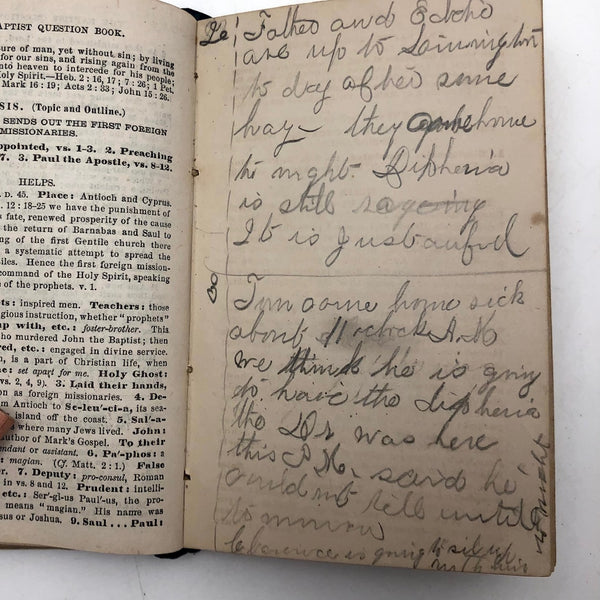 APTIST QUESTION BOOK.
ure of man, yet without sin; by living
for our sins, and rising again from the
nto heaven to intercede for his people;
Holy Spirit.—Heb. 2 : 16, 17; 7 : 26; 1 Pet.
Mark 16 : 19; Acts 2 : 33; John 15 : 26.
SIS. (Topic and Outline.)
SENDS OUT THE FIRST FOREIGN
MISSIONARIES.
ppointed, vs. 1-3. 2. Preaching
7. 3. Paul the Apostle, vs. 8-12.
HELPS.
D. 45. Place: Antioch and Cyprus.
12 : 18-25 we have the punishment of
s fate, renewed prosperity of the cause
the return of Barnabas and Saul to
ng of the first Gentile church there
a systematic attempt to spread the
iles. Hence the first foreign mission-
command of the Holy Spirit, speaking
s of the prophets. v. 1.
ts: inspired men. Teachers: those
gious instruction, whether "prophets"
up with, etc.: foster-brother. This
who murdered John the Baptist; then
red, etc.: engaged in divine service.
n, is a part of Christian life, when
e: set apart for me. Holy Ghost:
vs. 2, 4, 9). 3. Laid their hands,
on as foreign missionaries. 4. De-
m Antioch to Se-leu'-ci-a, its sea-
island off the coast. 5. Sal'-a-
where many Jews lived. John:
author of Mark's Gospel. To their
endant or assistant. 6. Pa'-phos: a
: magian. (Cf. Matt. 2 : 1.) False
r. 7. Deputy: pro-consul, Roman
in vs. 8 and 12. Prudent: intelli-
etc.: Ser'-gi-us Paul'-us, the pro-
means "magian." His name was
sus or Joshua. 9. Saul ... Paul:
Father and
are up to
to day after some
hay- they come home
to night. Diptheria
is still
It is Just awful
30
Tom came home sick
about 11 oclock A.M
we think he is going
to have the diptheria
the Dr was here
this P.M. said he
could not tell until
to morrow
Clarence is going to sit up
with him
to night